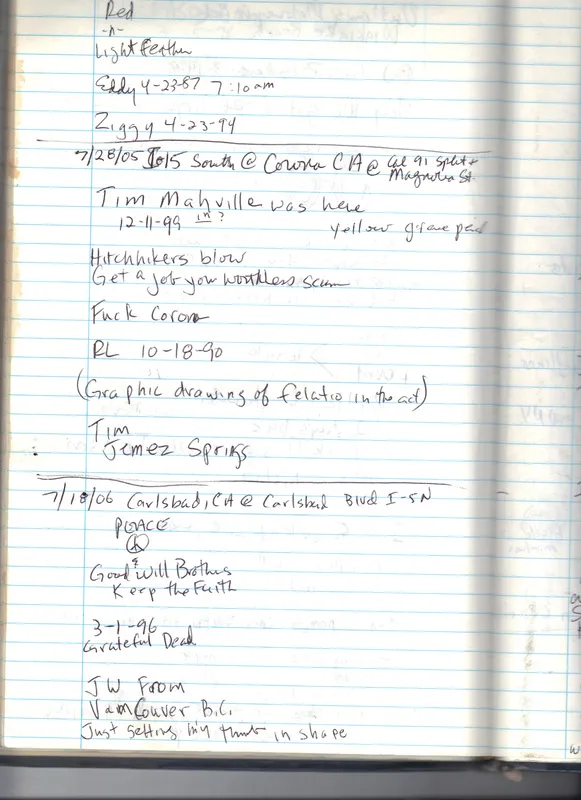 Red
-n-
Lightfeather
Eddy 4-23-87 7:10am
Ziggy 4-23-94
7/28/05 I-15 South @ Corona CA @ Cal 91 split +
Magnolia St.
Tim Mahville was here
12-11-99 in?
yellow grease pen
Hitchhikers blow
Get a job you worthless scum
Fuck Corona
RL 10-18-90
(Graphic drawing of felatio in the act)
Tim
Jemez Springs
7/18/06 Carlsbad, CA @ Carlsbad Blvd I-5N
PEACE
&
Good Will Brothers
Keep the Faith
3-1-96
Grateful Dead
JW From
Vancouver B.C.
Just getting my thumb in shape